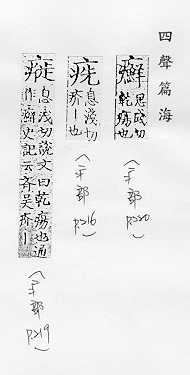 四聲篇海
癬
思淺切
乾瘍也
(疒部 P.220)
息淺切
疥丨也
(疒部 P.216)
息淺切說文曰乾瘍也通
作癬史記云齊吳疥丨
(疒部 P.219)